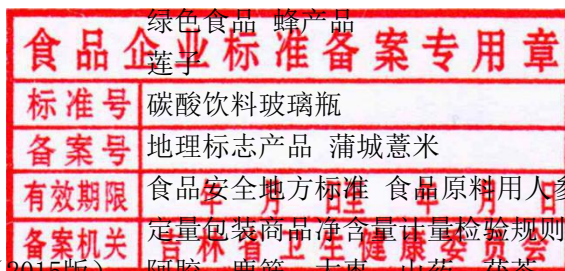 绿色食品 蜂产品
食品企业标准备案专用章
莲子
标准号 碳酸饮料玻璃瓶
备案号 地理标志产品 蒲城薏米
有效期限 年 月 日至 年 月 日
食品安全地方标准 食品原料用人参
定量包装商品净含量计量检验规则
备案机关 吉林省卫生健康委员会
2015版) 阿胶 粟 大枣 山药 茯苓